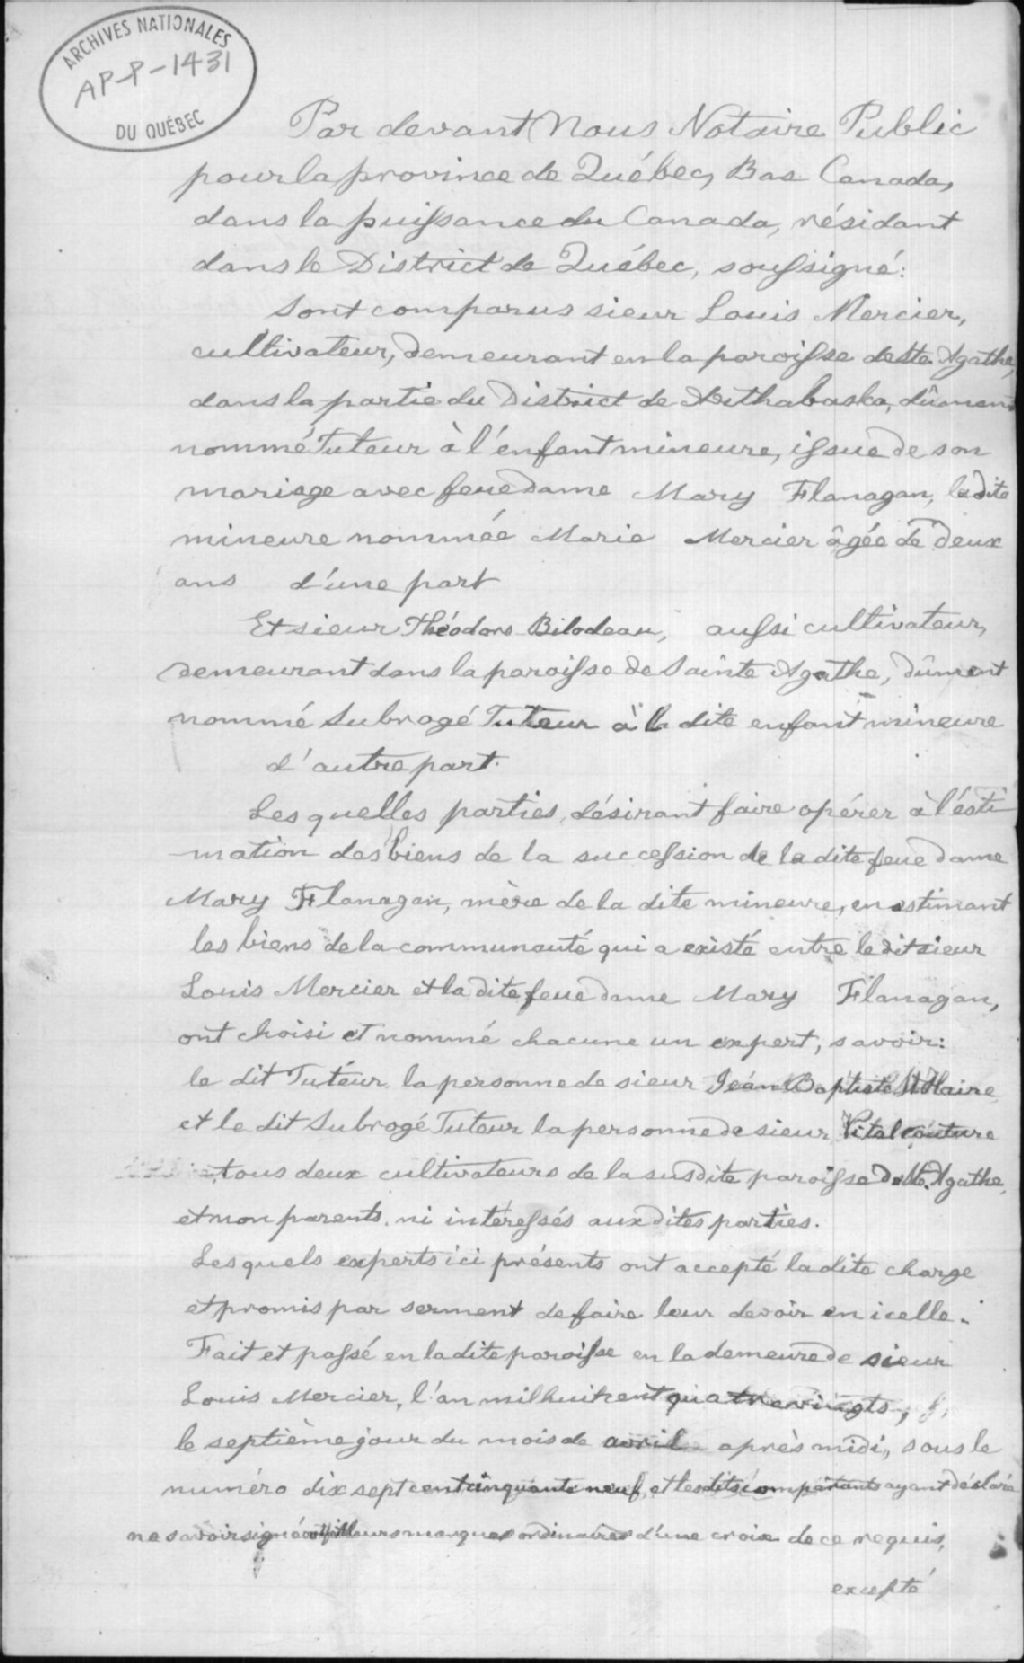 ARCHIVES NATIONALES
AP-P-1431
DU QUÉBEC
Par devant Nous Notaire Public
pour la province de Québec, Bas Canada,
dans la puissance du Canada, résidant
dans le District de Québec, soussigné:
Sont comparus sieur Louis Mercier,
cultivateur, demeurant en la paroisse de Ste. Agathe,
dans la partie du District de Arthabaska, dûment
nommé Tuteur à l'enfant mineure, issue de son
mariage avec feue dame Mary Flanagan, la dite
mineure nommée Marie Mercier âgée de deux
ans d'une part
Et sieur Théodore Bilodeau, aussi cultivateur,
demeurant dans la paroisse de Sainte Agathe, dûment
nommé Subrogé Tuteur à la dite enfant mineure
d'autre part.
Les quelles parties, désirant faire opérer à l'esti
mation des biens de la succession de la dite feue dame
Mary Flanagan, mère de la dite mineure, en estimant
les biens de la communauté qui a existé entre le dit sieur
Louis Mercier et la dite feue dame Mary Flanagan,
ont choisi et nommé chacune un expert, savoir:
le dit Tuteur la personne de sieur Jean Baptiste St Hilaire
et le dit Subrogé Tuteur la personne de sieur Vital Couture
tous deux cultivateurs de la susdite paroisse de Ste. Agathe,
et non parents, ni intéressés aux dites parties.
Les quels experts ici présents ont accepté la dite charge
et promis par serment de faire leur devoir en icelle.
Fait et passé en la dite paroisse en la demeure de sieur
Louis Mercier, l'an mil huit cent quatre vingts,
le septième jour du mois de avril après midi, sous le
numéro dix sept cent cinquante neuf, et les dits comparants ayant déclaré
ne savoir signé ont fait leurs marques ordinaires d'une croix de ce requis,
excepté